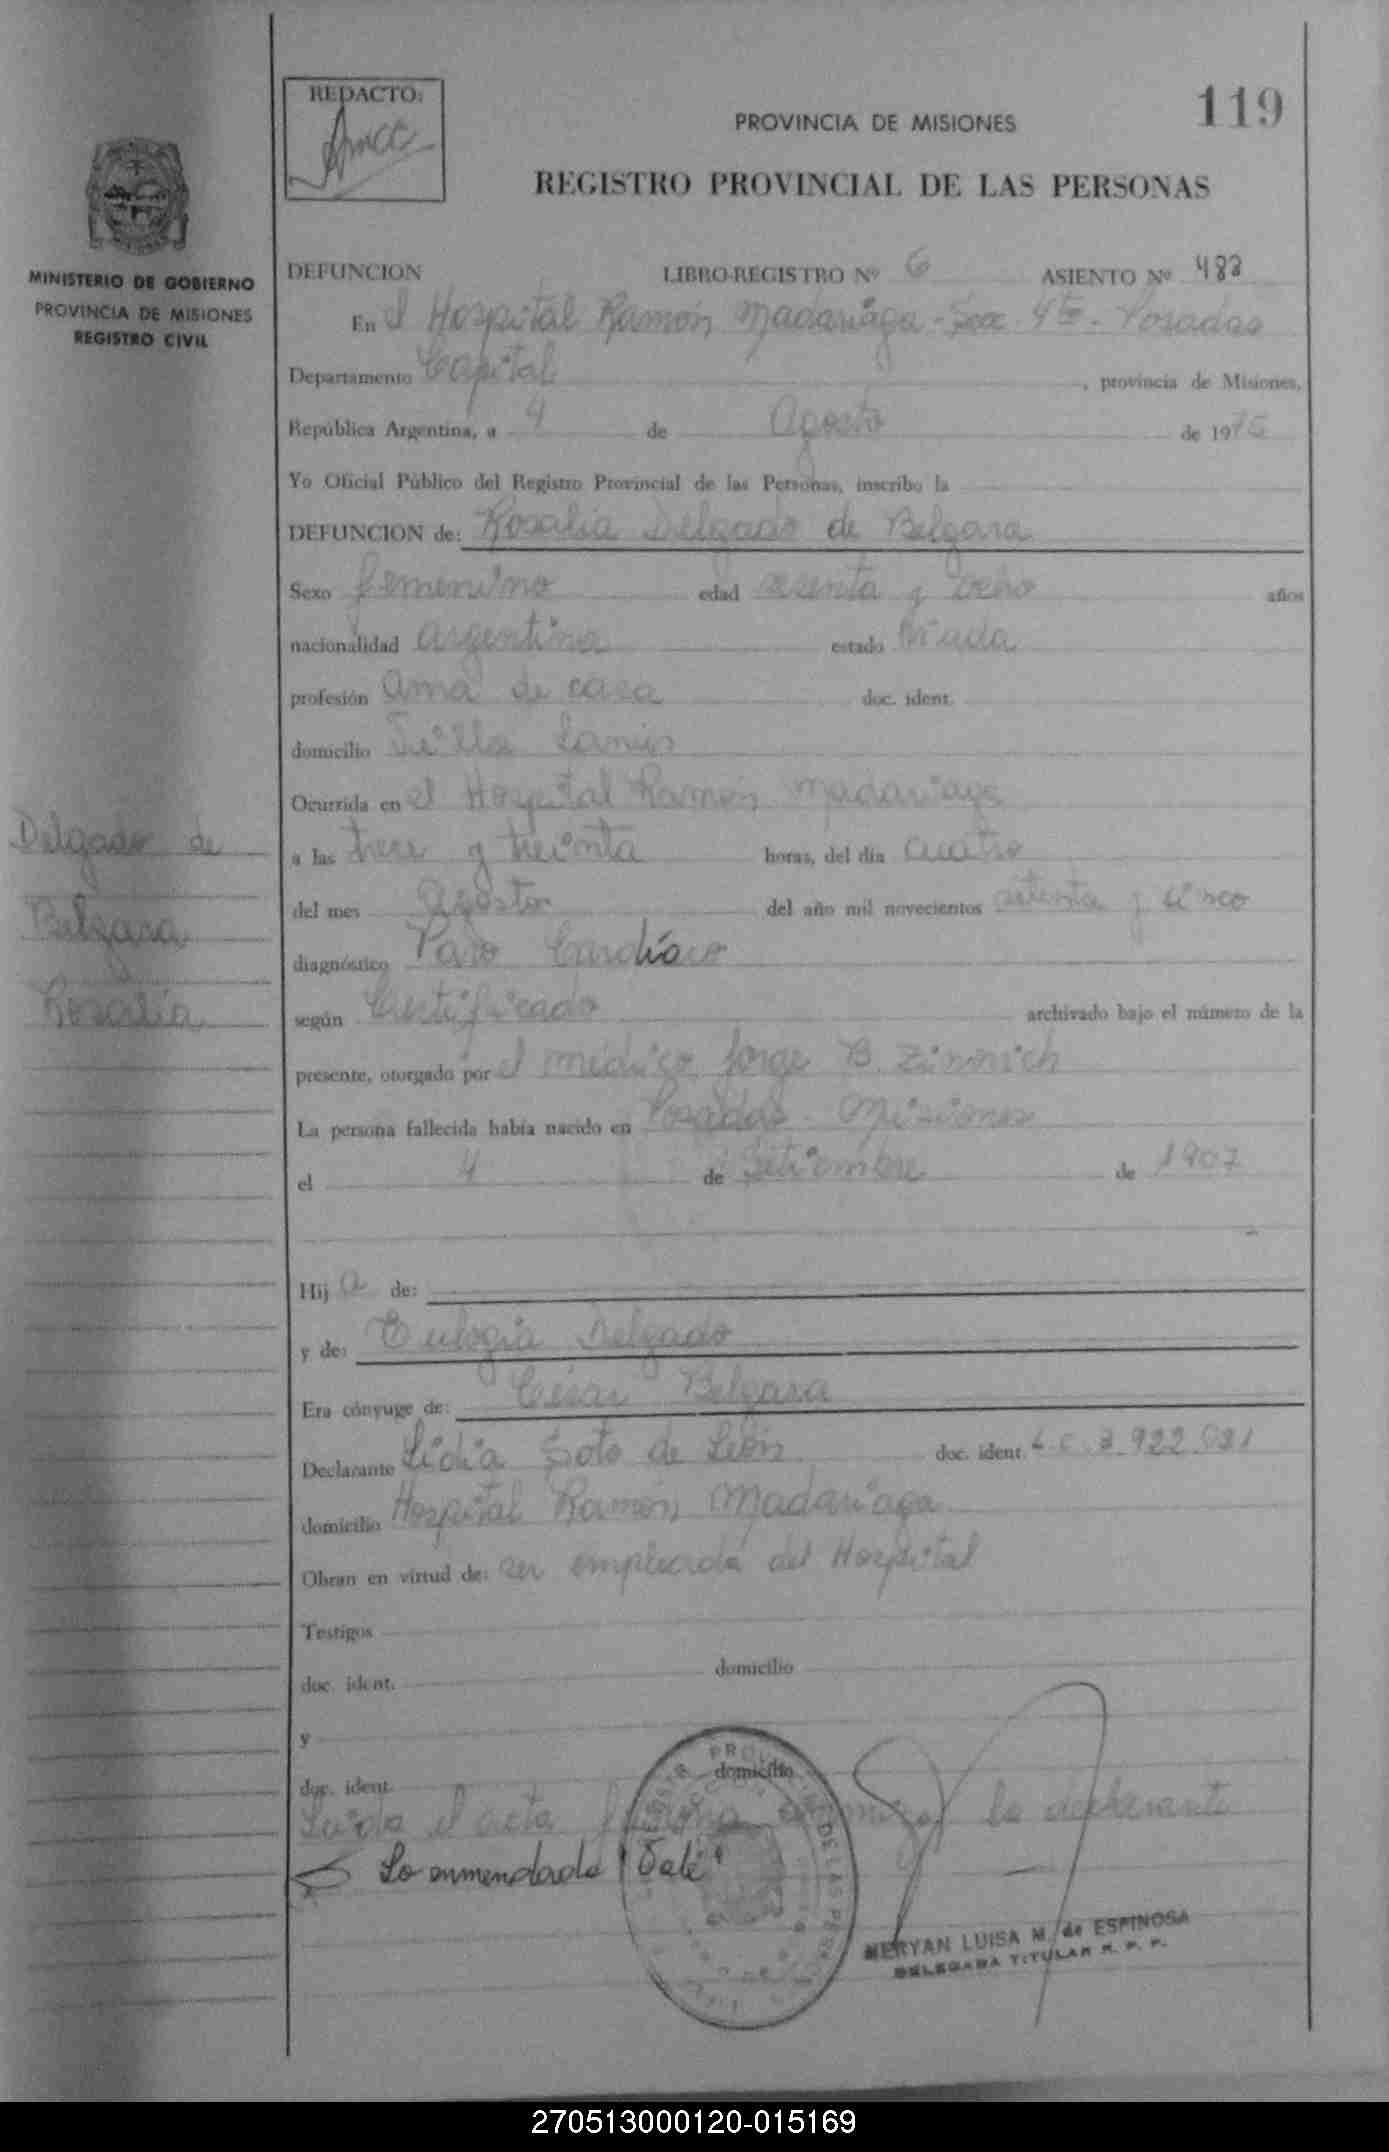 REDACTO:
119
PROVINCIA DE MISIONES
REGISTRO PROVINCIAL DE LAS PERSONAS
MINISTERIO DE GOBIERNO
PROVINCIA DE MISIONES
REGISTRO CIVIL
DEFUNCION LIBRO-REGISTRO Nº 6 ASIENTO Nº 483
En el Hospital Ramón Madariaga - Secc. 4ta - Posadas
Departamento Capital, provincia de Misiones,
República Argentina, a 4 de Agosto de 1975
Yo Oficial Público del Registro Provincial de las Personas, inscribo la
DEFUNCION de: Rosalia Delgado de Belgara
Sexo femenino edad sesenta y ocho años
nacionalidad argentina estado
profesión ama de casa doc. ident.
domicilio Villa Lanús
Ocurrida en el Hospital Ramón Madariaga
a las trece y treinta horas, del día cuatro
del mes Agosto del año mil novecientos setenta y cinco
diagnóstico Paro Cardíaco
según Certificado archivado bajo el número de la
presente, otorgado por el médico Jorge B.
La persona fallecida había nacido en Posadas - Misiones
el 4 de Setiembre de 1907
Hij a de:
y de: Eulogia Delgado
Era cónyuge de: César Belgara
Declarante Lidia Soto de León doc. ident. L.C. 3.922.031
domicilio Hospital Ramón Madariaga
Obran en virtud de: ser empleada del Hospital
Testigos
doc. ident. domicilio
y
doc. ident. domicilio
Leida el acta firma conmigo la declarante
Lo enmendado "Vale"
MERYAN LUISA M. de ESPINOSA
DELEGADA TITULAR R. P. P.
Delgado de
Belgara
Rosalia
270513000120-015169